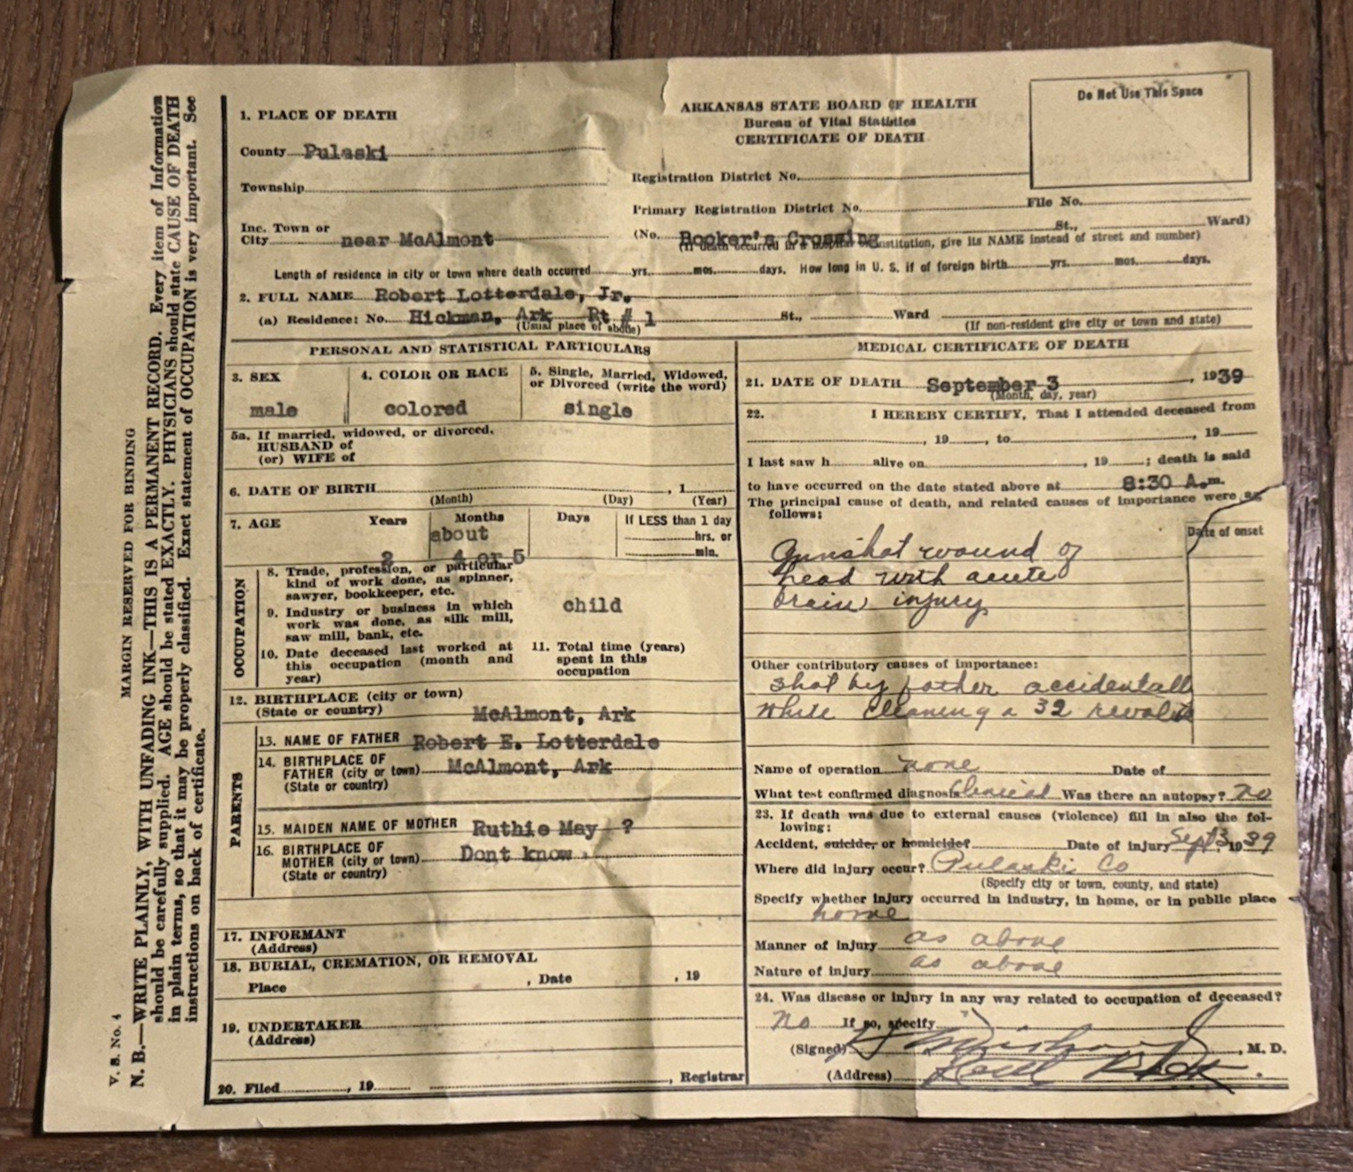 1. PLACE OF DEATH
County Pulaski
Township
Inc. Town or
City near McAlmont
ARKANSAS STATE BOARD OF HEALTH
Bureau of Vital Statistics
CERTIFICATE OF DEATH
Do Not Use This Space
Registration District No.
Primary Registration District No. File No.
(No. Booker's Crossing St., Ward)
(If death occurred in a hospital or institution, give its NAME instead of street and number)
Length of residence in city or town where death occurred yrs. mos. days. How long in U. S. if of foreign birth yrs. mos. days.
2. FULL NAME Robert Lotterdale, Jr.
(a) Residence: No. Hickman, Ark Rt # 1 St., Ward
(Usual place of abode) (If non-resident give city or town and state)
PERSONAL AND STATISTICAL PARTICULARS
3. SEX
male
4. COLOR OR RACE
colored
5. Single, Married, Widowed,
or Divorced (write the word)
single
5a. If married, widowed, or divorced.
HUSBAND of
(or) WIFE of
6. DATE OF BIRTH , 1
(Month) (Day) (Year)
7. AGE Years Months Days If LESS than 1 day
about hrs. or
2 4 or 5 min.
OCCUPATION
8. Trade, profession, or particular
kind of work done, as spinner,
sawyer, bookkeeper, etc.
9. Industry or business in which
work was done, as silk mill,
saw mill, bank, etc.
child
10. Date deceased last worked at
this occupation (month and
year)
11. Total time (years)
spent in this
occupation
12. BIRTHPLACE (city or town)
(State or country) McAlmont, Ark
PARENTS
13. NAME OF FATHER Robert E. Lotterdale
14. BIRTHPLACE OF
FATHER (city or town) McAlmont, Ark
(State or country)
15. MAIDEN NAME OF MOTHER Ruthie May ?
16. BIRTHPLACE OF
MOTHER (city or town) Dont know
(State or country)
17. INFORMANT
(Address)
18. BURIAL, CREMATION, OR REMOVAL
Place , Date , 19
19. UNDERTAKER
(Address)
20. Filed , 19 , Registrar
MEDICAL CERTIFICATE OF DEATH
21. DATE OF DEATH September 3 , 1939
(Month, day, year)
22. I HEREBY CERTIFY, That I attended deceased from
, 19 , to , 19
I last saw h alive on , 19 ; death is said
to have occurred on the date stated above at 8:30 A.m.
The principal cause of death, and related causes of importance were as
follows:
Date of onset
Gunshot wound of
head with acute
brain injury
Other contributory causes of importance:
Shot by father accidentally
while cleaning a 32 revolver
Name of operation none Date of
What test confirmed diagnosis Clinical Was there an autopsy? no
23. If death was due to external causes (violence) fill in also the fol-
lowing:
Accident, suicide, or homicide? Date of injury Sept 3, 1939
Where did injury occur? Pulaski Co
(Specify city or town, county, and state)
Specify whether injury occurred in industry, in home, or in public place
home
Manner of injury as above
Nature of injury as above
24. Was disease or injury in any way related to occupation of deceased?
no If so, specify
(Signed) , M. D.
(Address)
MARGIN RESERVED FOR BINDING
N. B.—WRITE PLAINLY, WITH UNFADING INK—THIS IS A PERMANENT RECORD. Every item of Information
should be carefully supplied. AGE should be stated EXACTLY. PHYSICIANS should state CAUSE OF DEATH
in plain terms, so that it may be properly classified. Exact statement of OCCUPATION is very important. See
instructions on back of certificate.
V. S. No. 4